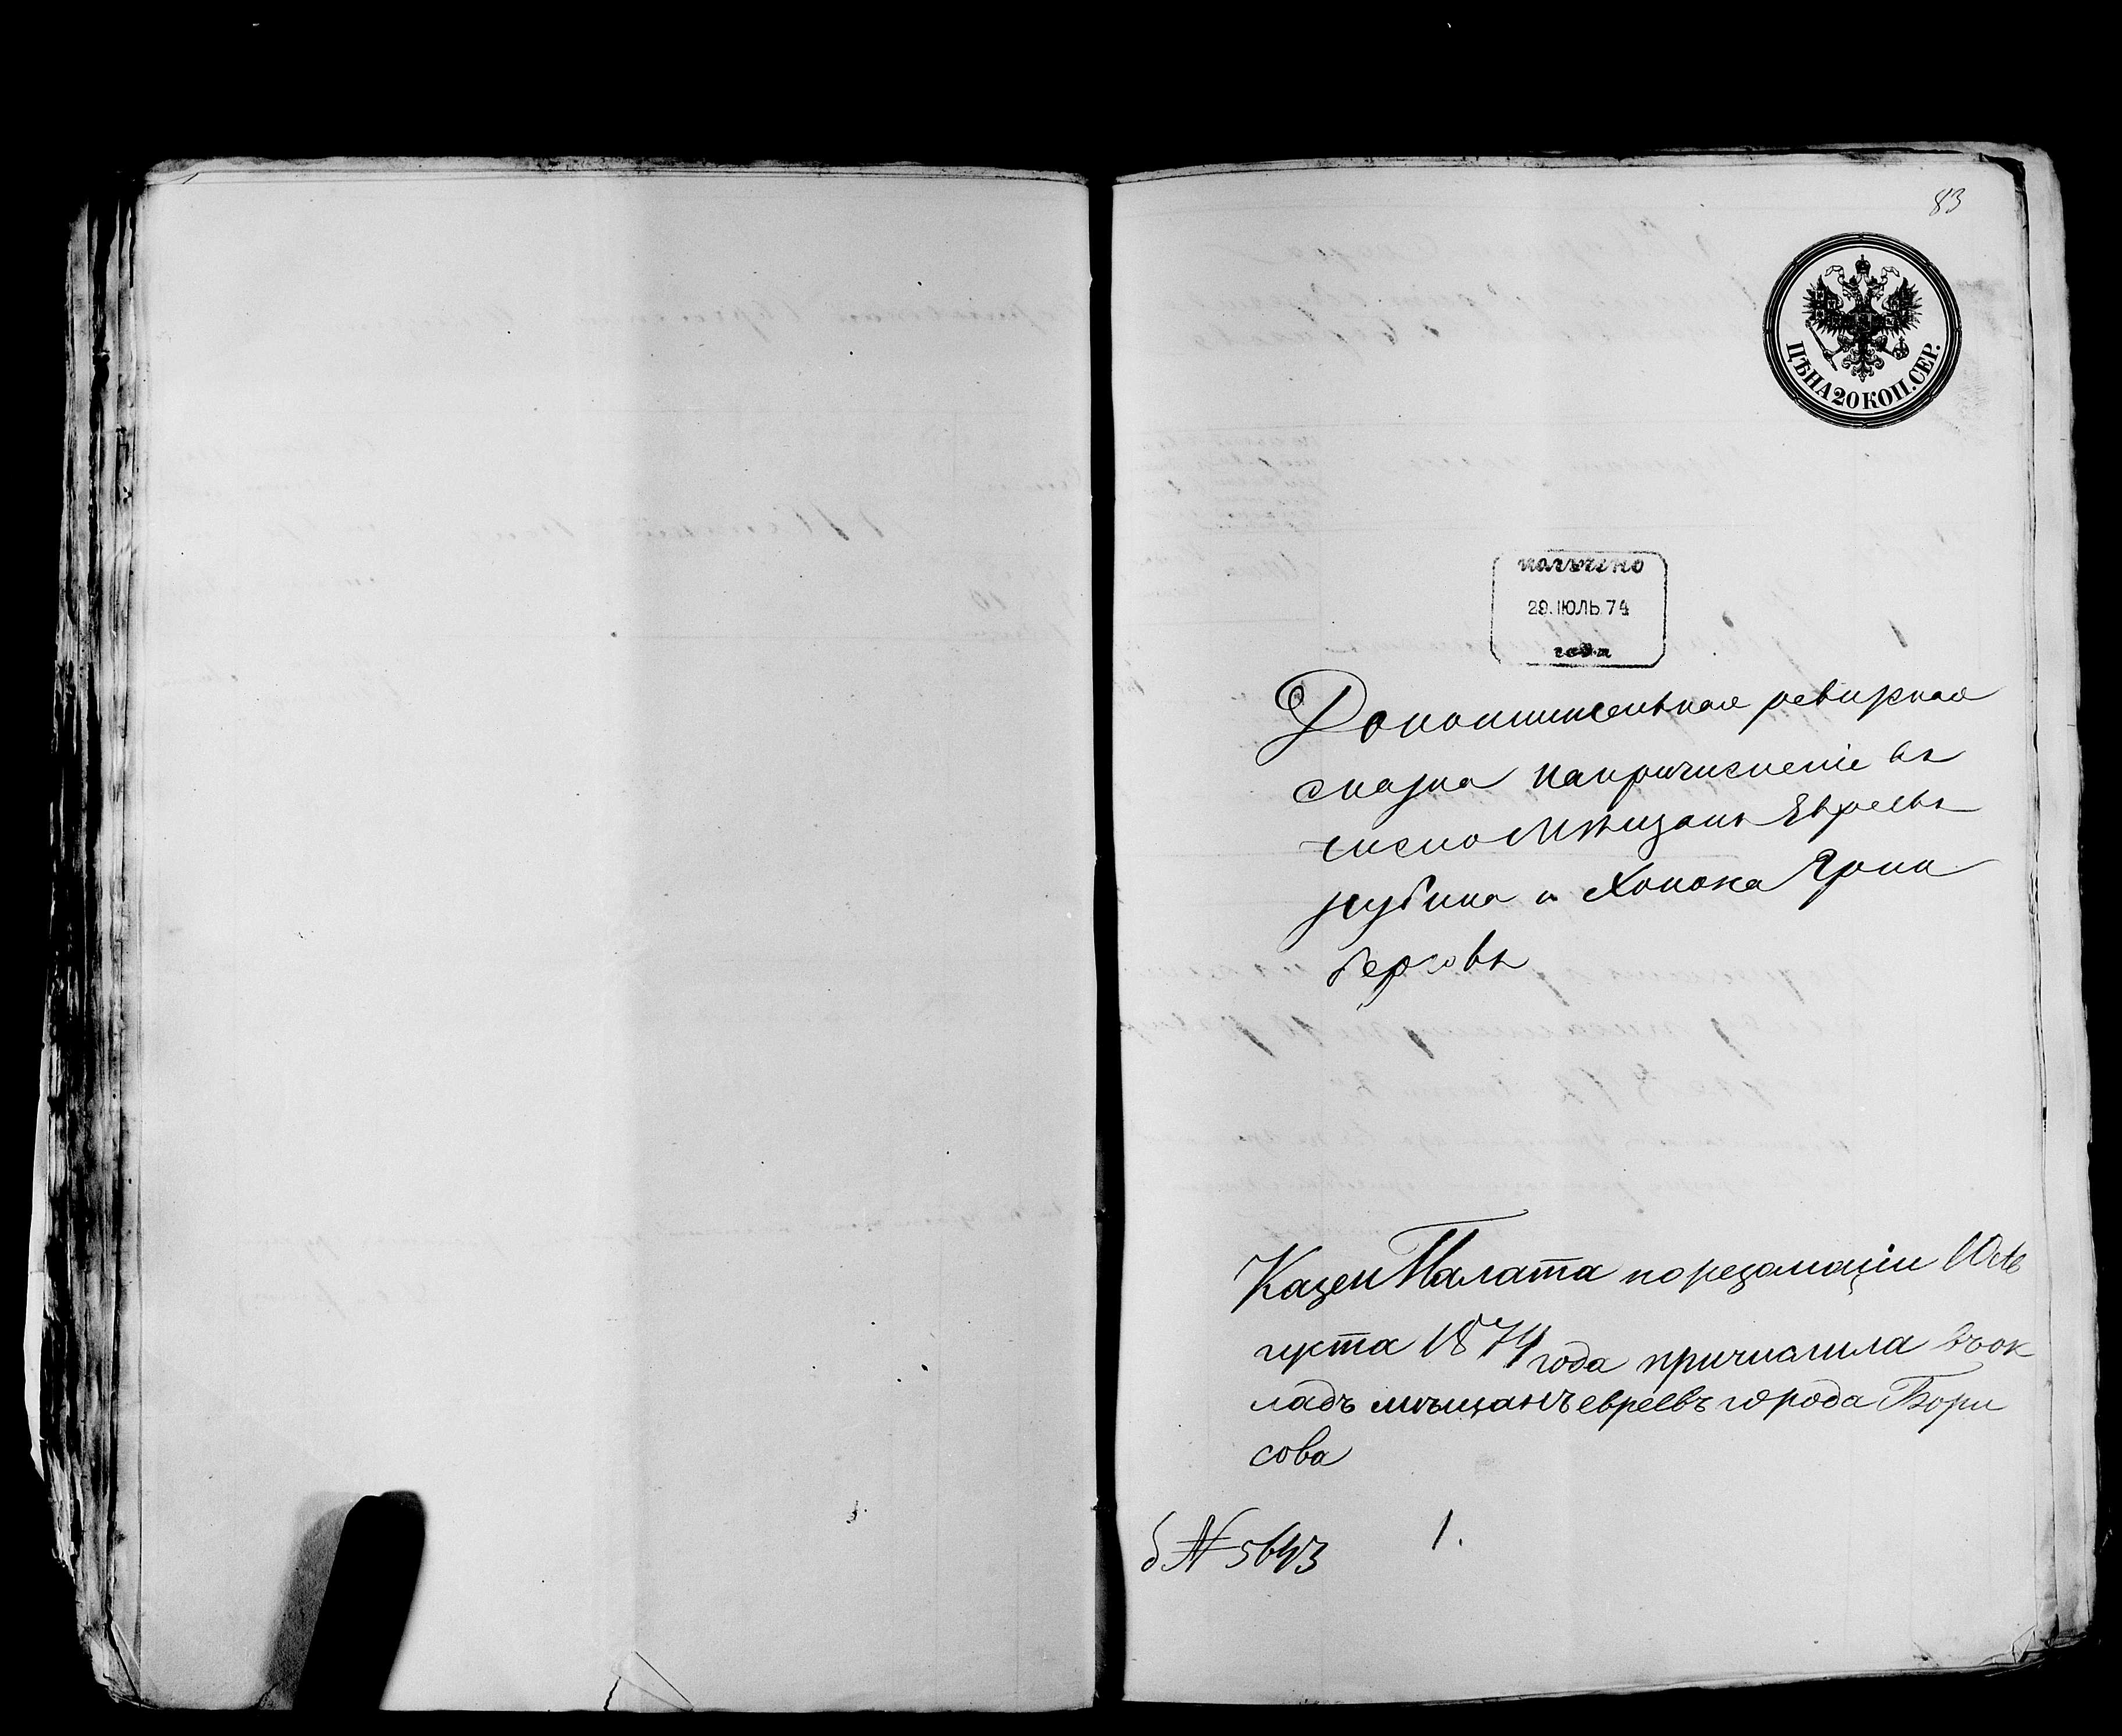 83
ЦѢНА 20 КОП. СЕР.
получено
29.ІЮЛЬ.74
года
Дополнительная ревизная
сказка на причисленіе въ
число Мѣщанъ Евреевъ
рубина и Хонона Грин
берговъ
Казен Палата по резолюціи 10 Ав
густа 1874 года причислила въ ок
ладъ мѣщанъ евреевъ города Бори
сова
№ 5643
1.